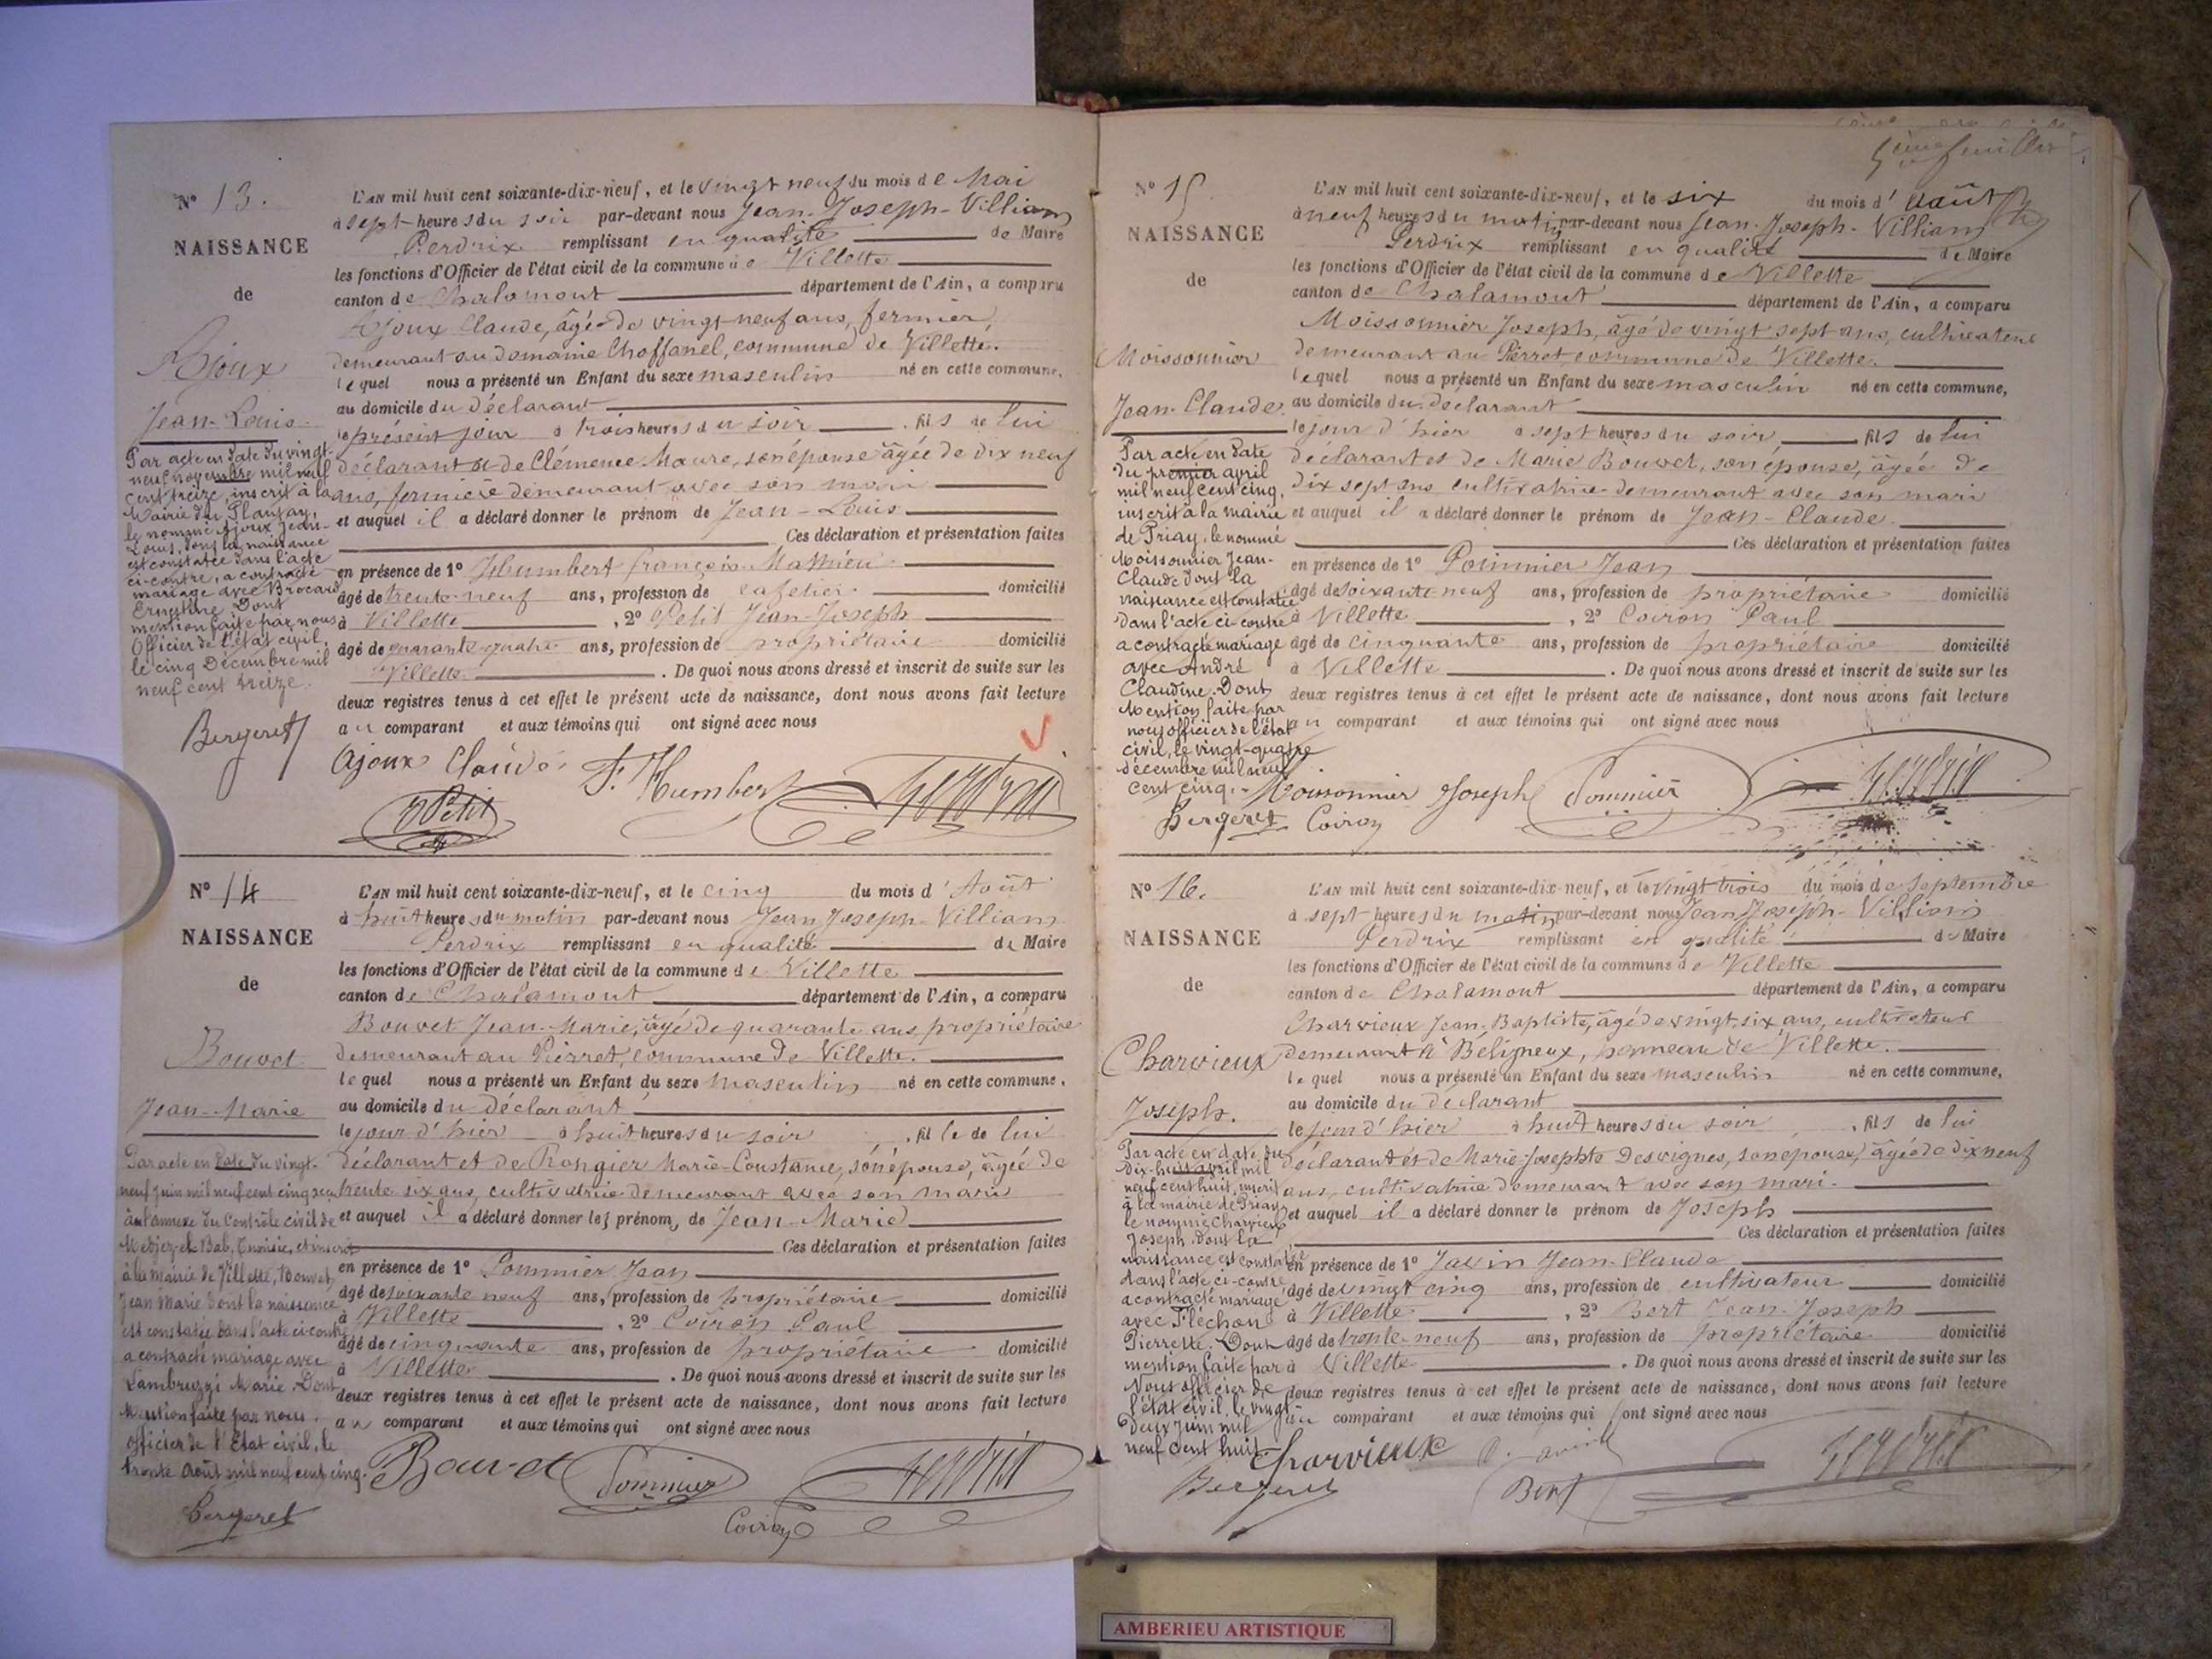 N° 13.
NAISSANCE
de
Ajoux
Jean-Louis
Par acte en date du vingt-
neuf novembre mil neuf
cent treize, inscrit à la
Mairie du Plantay,
le nommé Ajoux Jean-
Louis, dont la naissance
est constatée dans l'acte
ci-contre, a contracté
mariage avec Brocard
Ernestine. Dont
mention faite par nous
Officier de l'état civil,
le cinq Décembre mil
neuf cent treize.
Bergeret
L'AN mil huit cent soixante-dix-neuf, et le vingt neuf du mois de Mai
à sept heures du soir par-devant nous Jean-Joseph-Villiam
Perdrix remplissant en qualité de Maire
les fonctions d'Officier de l'état civil de la commune de Villette
canton de Chalamont département de l'Ain, a comparu
Ajoux Claude, âgé de vingt-neuf ans, fermier,
demeurant au domaine Choffanel, commune de Villette.
lequel nous a présenté un Enfant du sexe masculin né en cette commune,
au domicile du déclarant
le présent jour à trois heures du soir, fils de lui
déclarant et de Clémence Maure, son épouse âgée de dix neuf
ans, fermière demeurant avec son mari
et auquel il a déclaré donner le prénom de Jean-Louis
Ces déclaration et présentation faites
en présence de 1° Humbert françois Mathieu
âgé de trente-neuf ans, profession de cafetier domicilié
à Villette, 2° Petit Jean-Joseph
âgé de quarante-quatre ans, profession de propriétaire domicilié
à Villette. De quoi nous avons dressé et inscrit de suite sur les
deux registres tenus à cet effet le présent acte de naissance, dont nous avons fait lecture
au comparant et aux témoins qui ont signé avec nous
Ajoux Claude F. Humbert
Petit Perdrix
N° 14
NAISSANCE
de
Bouvet
Jean-Marie
Par acte en date du vingt-
neuf juin mil neuf cent cinq
à l'annexe du Contrôle civil de
Medjez-el-Bab, Tunisie, et inscrit
à la mairie de Villette, Bouvet
Jean Marie dont la naissance
est constatée dans l'acte ci-contre
a contracté mariage avec
Lambruzzi Marie. Dont
Mention faite par nous
officier de l'Etat civil, le
trente Août mil neuf cent cinq.
Bergeret
L'AN mil huit cent soixante-dix-neuf, et le cinq du mois d'Août
à huit heures du matin par-devant nous Jean Joseph-Villiam
Perdrix remplissant en qualité de Maire
les fonctions d'Officier de l'état civil de la commune de Villette
canton de Chalamont département de l'Ain, a comparu
Bouvet Jean-Marie, âgé de quarante ans, propriétaire
demeurant au Pierret, commune de Villette.
lequel nous a présenté un Enfant du sexe masculin né en cette commune,
au domicile du déclarant
le jour d'hier à huit heures du soir, fil de lui
déclarant et de Rongier Marie-Constance, son épouse, âgée de
trente six ans, cultivatrice demeurant avec son mari
et auquel il a déclaré donner les prénom, de Jean-Marie
Ces déclaration et présentation faites
en présence de 1° Pommier Jean
âgé de soixante neuf ans, profession de propriétaire domicilié
à Villette, 2° Coiron Paul
âgé de cinquante ans, profession de propriétaire domicilié
à Villette. De quoi nous avons dressé et inscrit de suite sur les
deux registres tenus à cet effet le présent acte de naissance, dont nous avons fait lecture
au comparant et aux témoins qui ont signé avec nous
Bouvet Pommier Perdrix
Coiron
5ème feuillet
N° 15
NAISSANCE
de
Moissonnier
Jean-Claude
Par acte en date
du premier avril
mil neuf cent cinq,
inscrit à la mairie
de Priay, le nommé
Moissonnier Jean-
Claude dont la
naissance est constatée
dans l'acte ci-contre
a contracté mariage
avec André
Claudine. Dont
Mention faite par
nous officier de l'état
civil, le vingt-quatre
décembre mil neuf
cent cinq.
Bergeret
L'AN mil huit cent soixante-dix-neuf, et le six du mois d'Août
à neuf heures du matin par-devant nous Jean-Joseph-Villiam
Perdrix remplissant en qualité de Maire
les fonctions d'Officier de l'état civil de la commune de Villette
canton de Chalamont département de l'Ain, a comparu
Moissonnier Joseph, âgé de vingt sept ans, cultivateur
demeurant au Pierret, commune de Villette.
lequel nous a présenté un Enfant du sexe masculin né en cette commune,
au domicile du déclarant
le jour d'hier à sept heures du soir, fils de lui
déclarant et de Marie Bouvet, son épouse, âgée de
dix sept ans cultivatrice demeurant avec son mari
et auquel il a déclaré donner le prénom de Jean-Claude.
Ces déclaration et présentation faites
en présence de 1° Pommier Jean
âgé de soixante neuf ans, profession de propriétaire domicilié
à Villette, 2° Coiron Paul
âgé de cinquante ans, profession de propriétaire domicilié
à Villette. De quoi nous avons dressé et inscrit de suite sur les
deux registres tenus à cet effet le présent acte de naissance, dont nous avons fait lecture
au comparant et aux témoins qui ont signé avec nous
Moissonnier Joseph Pommier Perdrix
Coiron
N° 16.
NAISSANCE
de
Charvieux
Joseph.
Par acte en date du
dix-huit avril mil
neuf cent huit, inscrit
à la mairie de Priay
le nommé Charvieux
Joseph dont la
naissance est constatée
dans l'acte ci-contre
a contracté mariage
avec Fléchon
Pierrette. Dont
mention faite par
Nous officier de
l'état civil, le vingt-
deux Juin mil
neuf cent huit
Bergeret
L'AN mil huit cent soixante-dix-neuf, et le vingt trois du mois de Septembre
à sept heures du matin par-devant nous Jean Joseph-Villiam
Perdrix remplissant en qualité de Maire
les fonctions d'Officier de l'état civil de la commune de Villette
canton de Chalamont département de l'Ain, a comparu
Charvieux Jean-Baptiste, âgé de vingt-six ans, cultivateur
demeurant à Béligneux, hameau de Villette.
lequel nous a présenté un Enfant du sexe masculin né en cette commune,
au domicile du déclarant
le jour d'hier à huit heures du soir, fils de lui
déclarant et de Marie-Josephte Desvignes, son épouse, âgée de dix neuf
ans, cultivatrice demeurant avec son mari.
et auquel il a déclaré donner le prénom de Joseph
Ces déclaration et présentation faites
en présence de 1° Javin Jean-Claude
âgé de vingt cinq ans, profession de cultivateur domicilié
à Villette, 2° Bert Jean-Joseph
âgé de trente-neuf ans, profession de propriétaire domicilié
à Villette. De quoi nous avons dressé et inscrit de suite sur les
deux registres tenus à cet effet le présent acte de naissance, dont nous avons fait lecture
au comparant et aux témoins qui ont signé avec nous
Charvieux Perdrix
Bert
AMBERIEU ARTISTIQUE